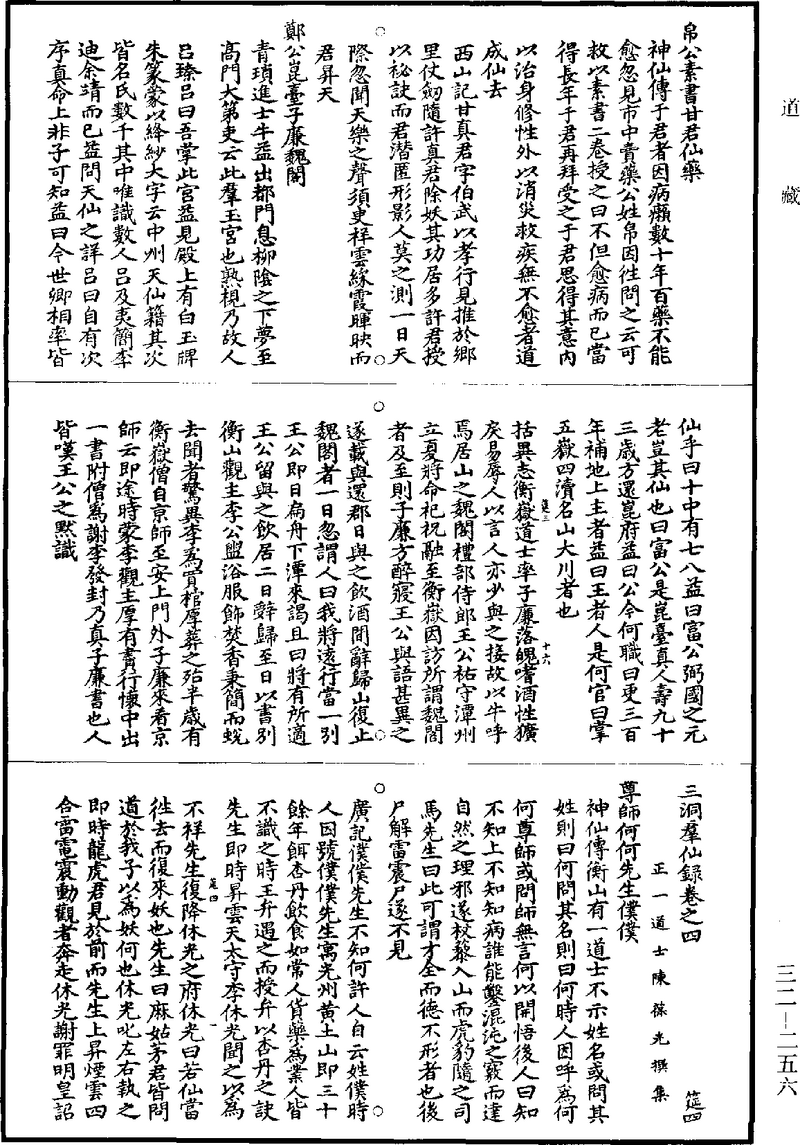 道藏
帛公素書甘君仙藥
神仙傳于君者因病癩數十年百藥不能
愈忽見市中賣藥公姓帛因往問之云可
救以素書二卷授之曰不但愈病而已當
得長年于君再拜受之于君思得其意內
以治身修性外以消災救疾無不愈者道
成仙去
西山記甘真君字伯武以孝行見推於鄉
里仗劒隨許真君除妖其功居多許君授
以秘訣而君潜匿形影人莫之測一日天
際忽聞天樂之聲須臾祥雲綵霞暉映而
君昇天
鄭公崑臺子廉魏閣
青瑣進士牛益出都門息柳陰之下夢至
高門大第吏云此羣玉宮也熟視乃故人
呂臻呂曰吾掌此宮益見殿上有白玉牌
朱篆蒙以絳紗大字云中州天仙籍其次
皆名氏數千其中唯識數人呂及夷簡李
迪余靖而已益問天仙之詳呂曰自有次
序真命上非子可知益曰今世卿相率皆
仙乎曰十中有七八益曰富公弼國之元
老豈其仙也曰富公是崑臺真人壽九十
三歲方還崑府益曰公今何職曰更三百
年補地上主者益曰王者人是何官曰掌
五嶽四瀆名山大川者也
括異志衡嶽道士率子廉落魄嗜酒性獷
戾易辱人以言人亦少與之接故以牛呼
焉居山之魏閣禮部侍郎王公祐守潭州
立夏將命祀祝融至衡嶽因訪所謂魏閣
者及至則子廉方醉寢王公與語甚異之
遂載與還郡日與之飲酒間辭歸山復止
魏閣者一日忽謂人曰我將遠行當一別
王公即日扁舟下潭來謁且曰將有所適
王公留與之飲居二日辭歸至日以書別
衡山觀主李公盥浴服飾焚香秉簡而蛻
去聞者驚異李為買棺厚葬之殆半歲有
衡嶽僧自京師至安上門外子廉來看京
師云即途時蒙李觀主厚有賫行懷中出
一書附僧為謝李發封乃真子廉書也人
皆嘆王公之默識
三洞羣仙錄卷之四 筵四
正一道士陳葆光撰集
尊師何何先生僕僕
神仙傳衡山有一道士不示姓名或問其
姓則曰何問其名則曰何時人因呼為何
何尊師或問師無言何以開悟後人曰知
不知上不知知病誰能鑿混沌之竅而達
自然之理邪遂杖藜入山而虎豹隨之司
馬先生曰此可謂才全而德不形者也後
尸解雷震尸遂不見
廣記僕僕先生不知何許人自云姓僕時
人因號僕僕先生寓光州黄土山即三十
餘年餌杏丹飲食如常人貨藥為業人皆
不識之時王弁遇之而授弁以杏丹之訣
先生即時昇雲天太守李休光聞之以為
不祥先生復降休光之府休光曰若仙當
往去而復來妖也先生曰麻姑茅君皆問
道於我子以為妖何也休光叱左右執之
即時龍虎君見於前而先生上昇煙雲四
合雷電震動觀者奔走休光謝罪明皇詔
三二—二五六